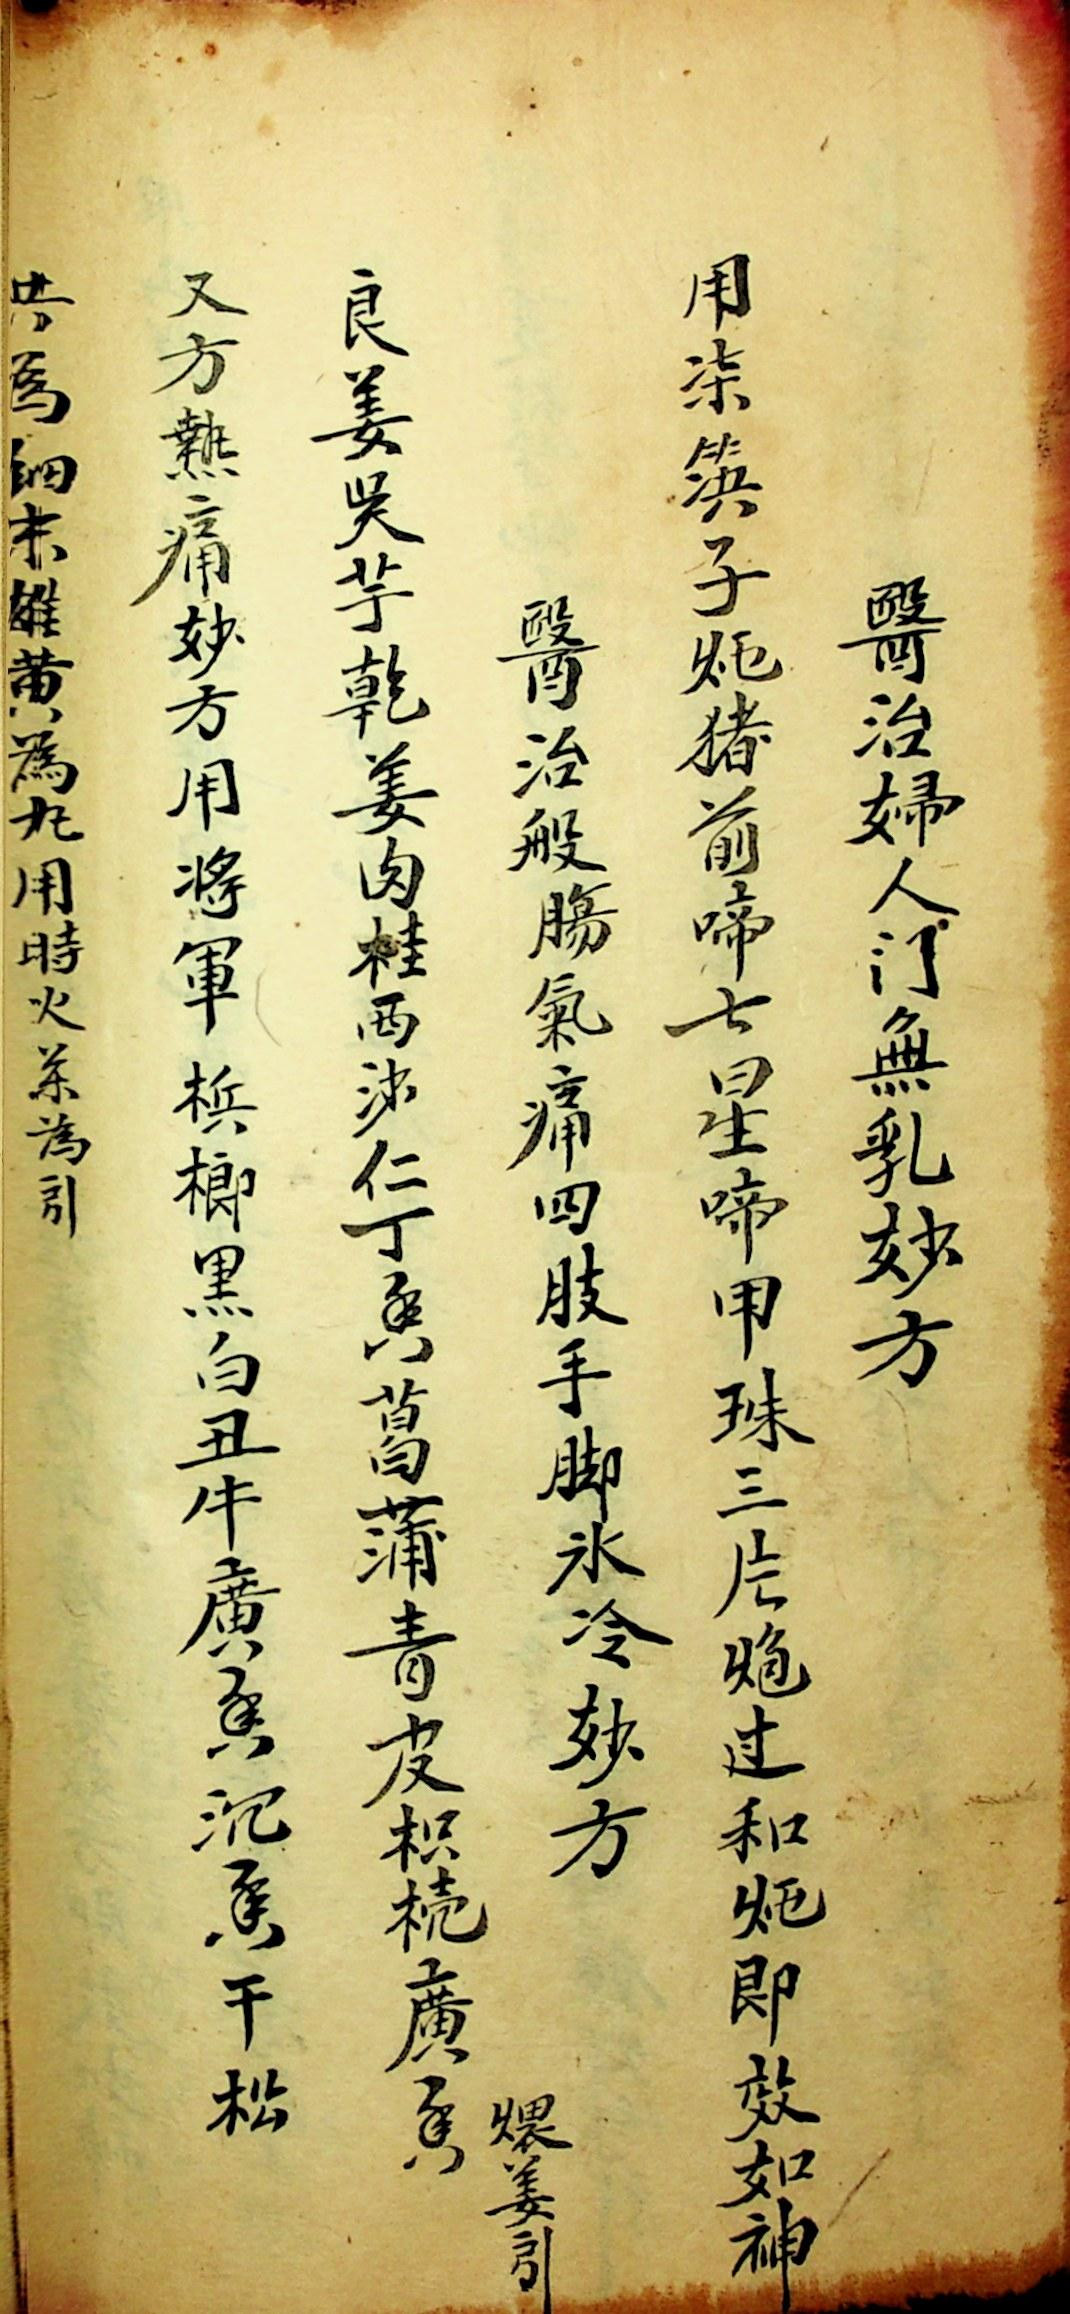 醫治婦人门無乳妙方
用柒篊子炖猪前啼七星啼甲珠三片炮过和炖即效如神
醫治般腸氣痛四肢手脚氷冷妙方
良姜吴芋乾姜肉桂西沙仁丁香菖蒲青皮枳壳廣香
煨姜引
又方熱痛妙方用將軍梹榔黑白丑牛廣香沉香干松
共為細末雄黄為丸用時火茶為引